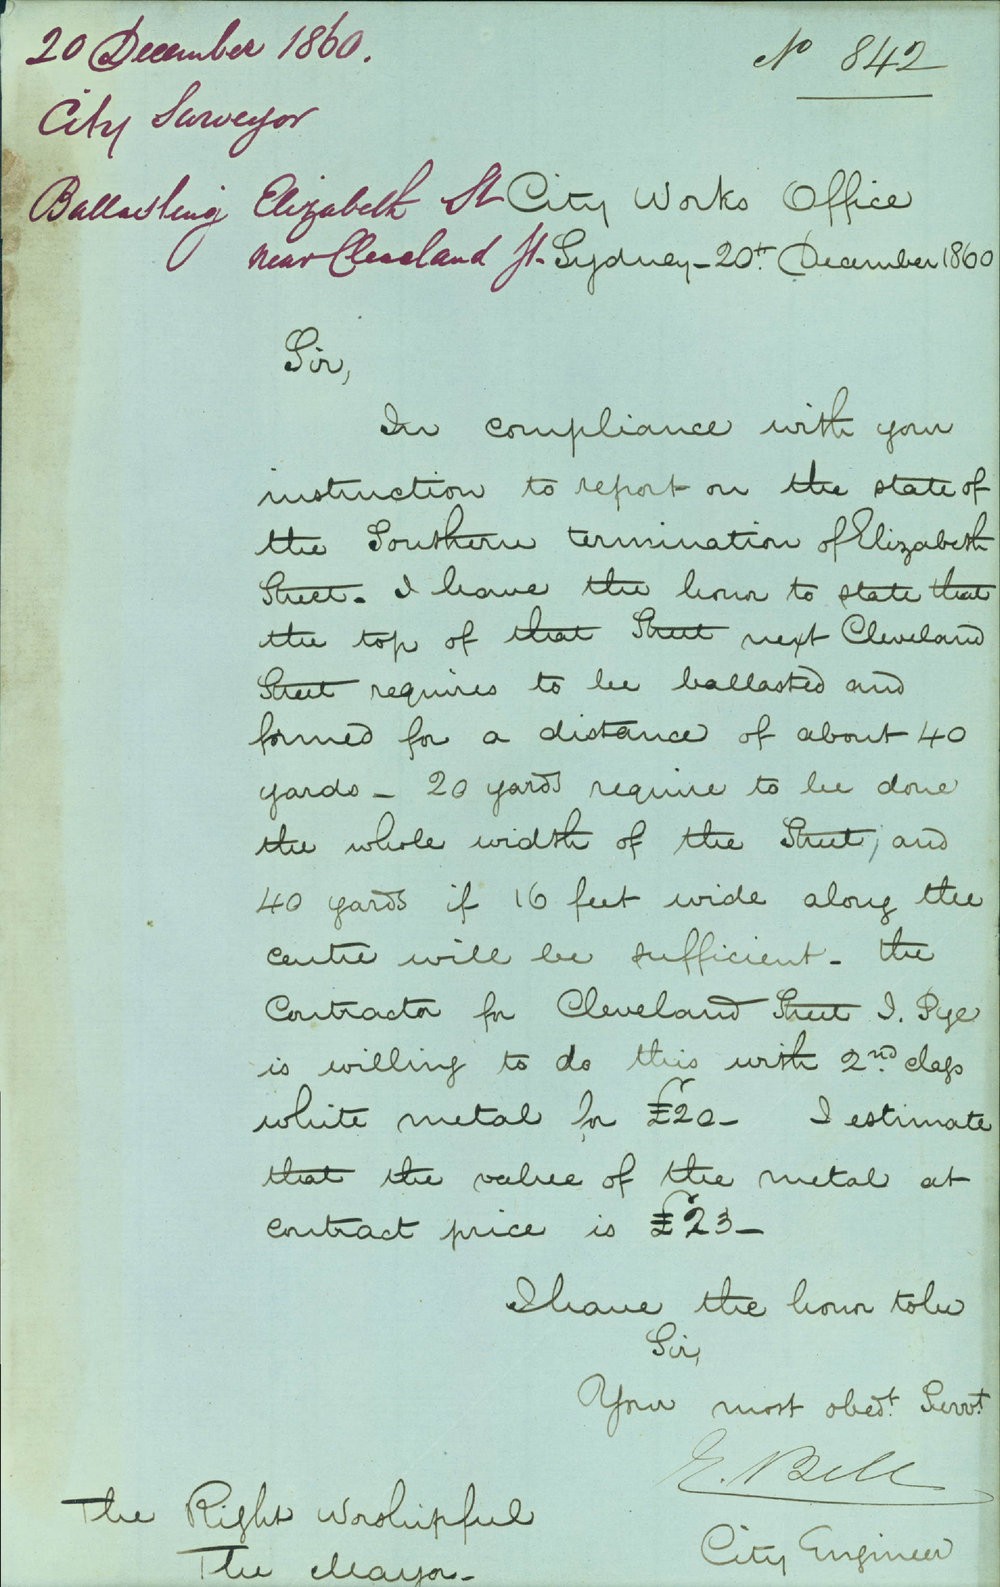 20 December 1860.
No 842
City Surveyor
Ballasting Elizabeth St
near Cleveland St.
City Works Office
Sydney - 20th December 1860
Sir,
In compliance with your
instruction to report on the state of
the Southern termination of Elizabeth
Street. I have the honor to state that
the top of that Street next Cleveland
Street requires to be ballasted and
formed for a distance of about 40
yards - 20 yards require to be done
the whole width of the Street, and
40 yards if 16 feet wide along the
centre will be sufficient - the
Contractor for Cleveland Street I. Pye
is willing to do this with 2nd class
white metal for £20 - I estimate
that the value of the metal at
contract price is £23 -
I have the honor to be
Sir,
Your most obedt. Servt.
E. Bell
City Engineer
The Right Worshipful
The Mayor -